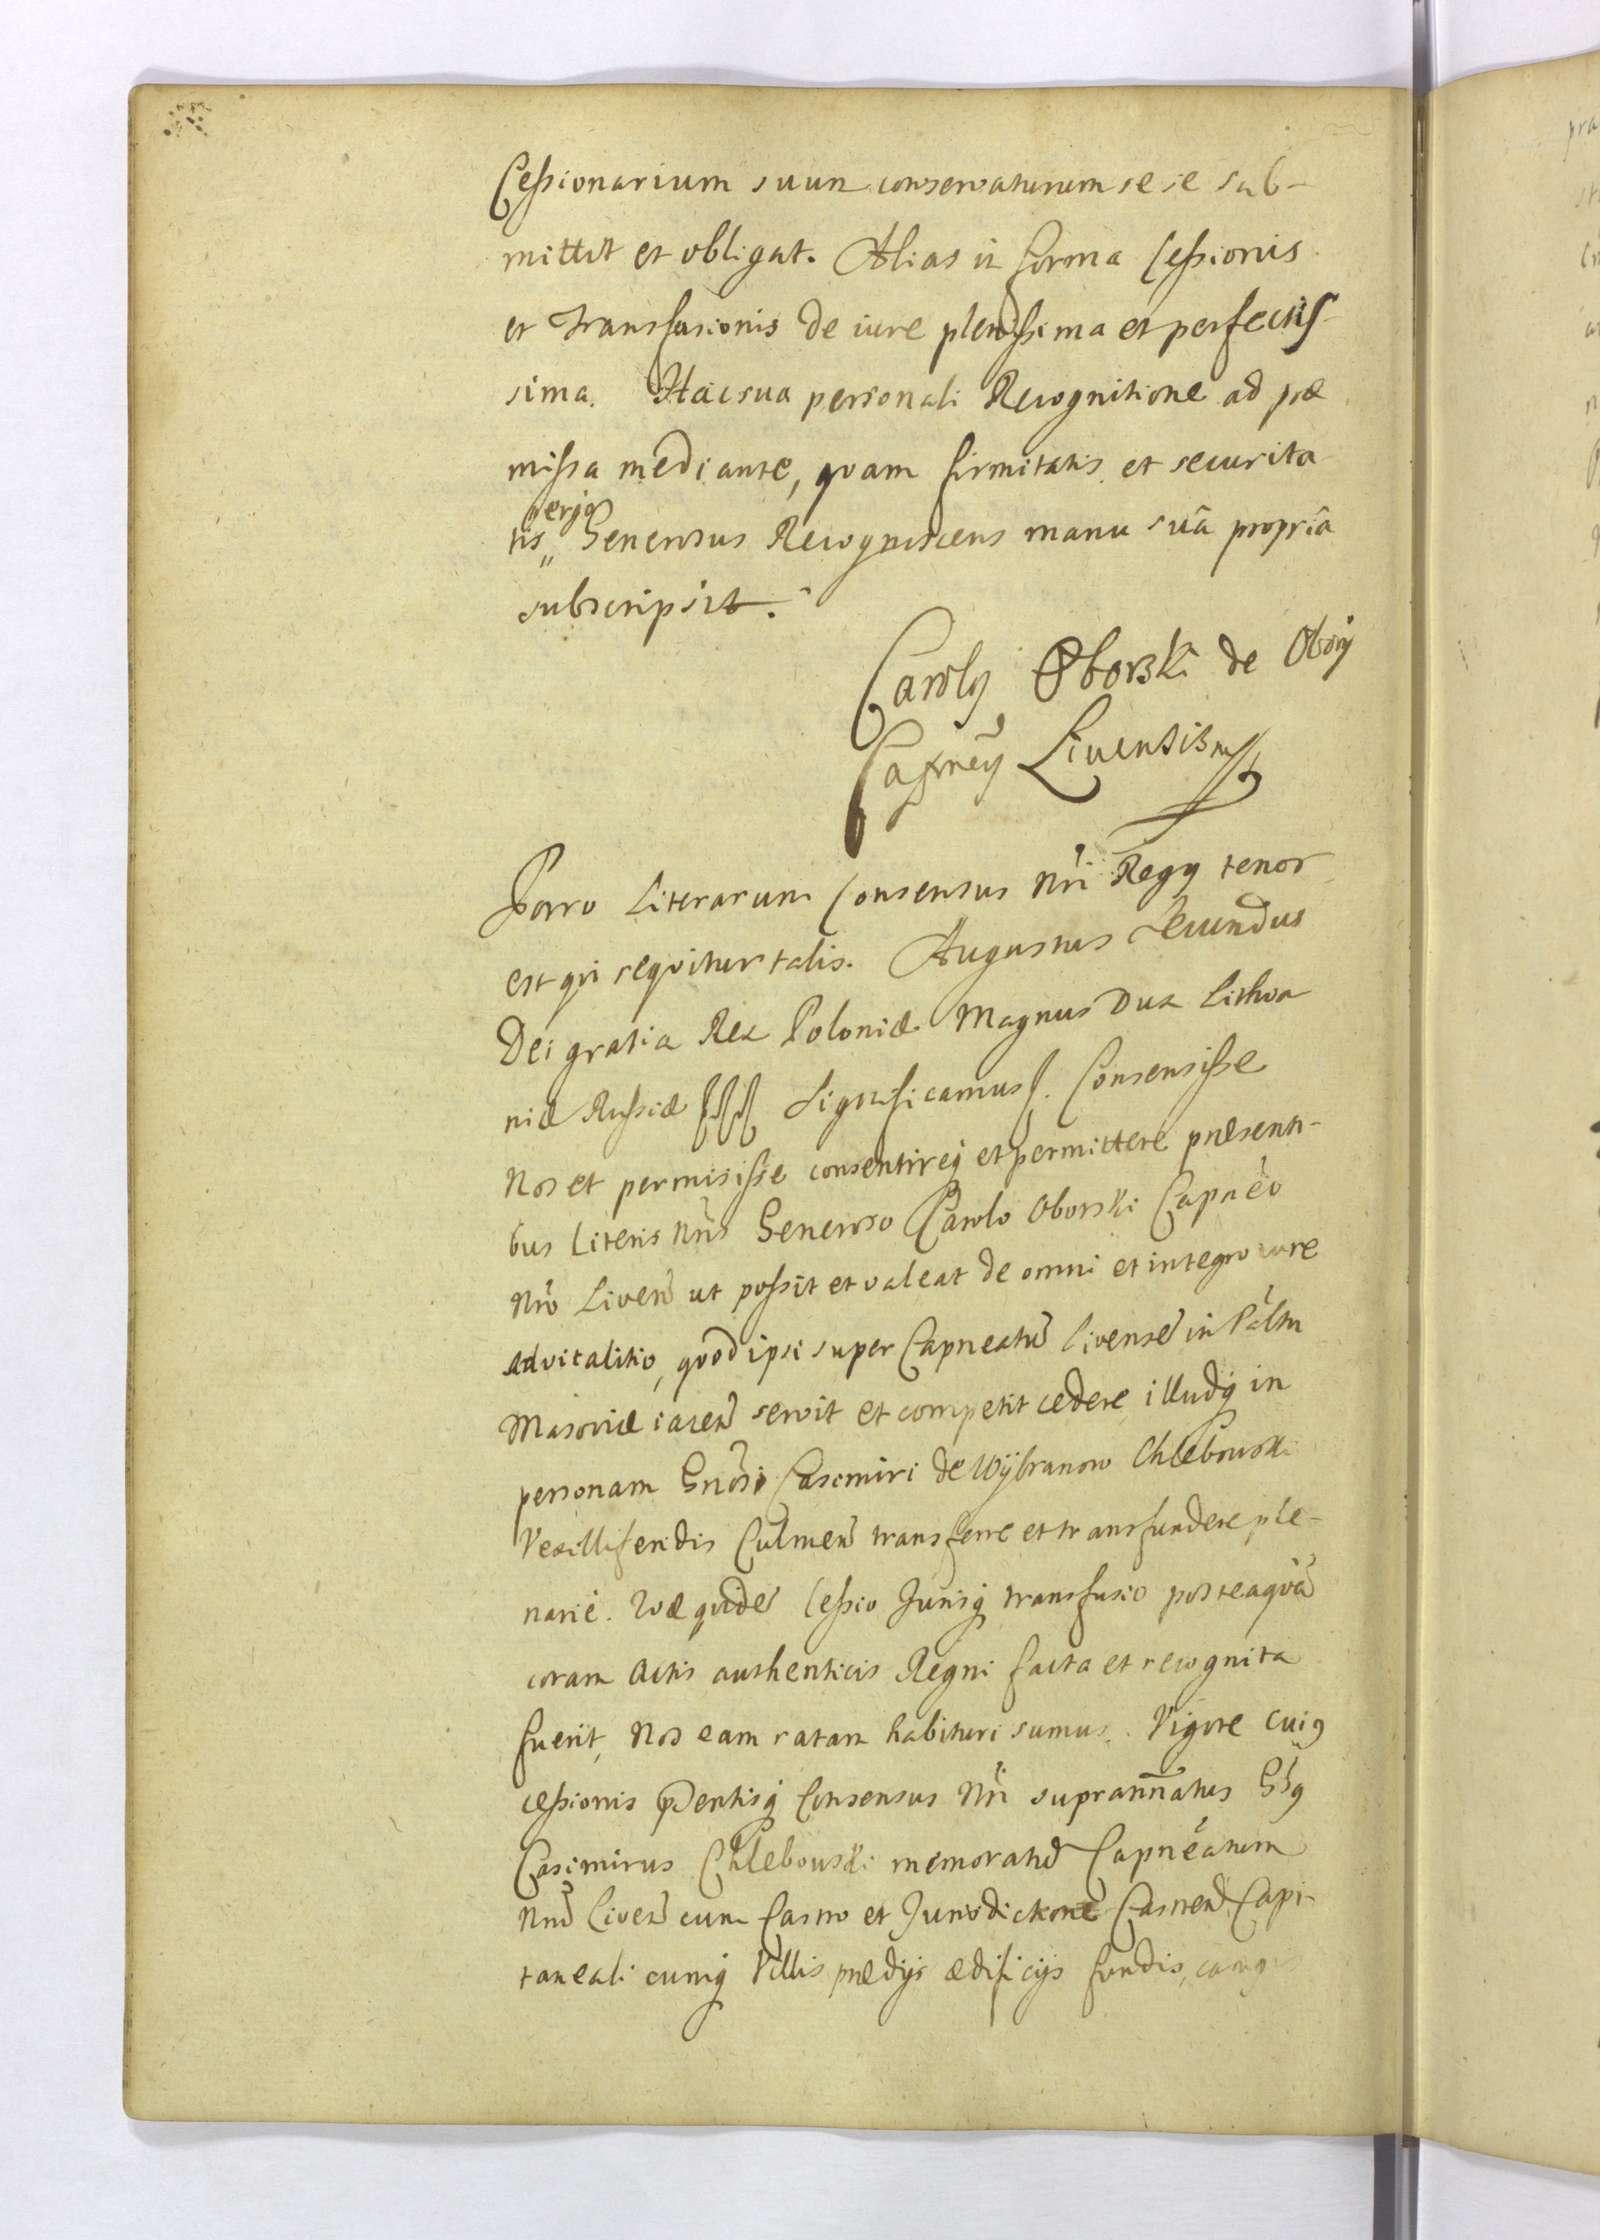 Cessionarium suum conservaturum se se sub-
mittit et obligat. Alias in forma Cessionis
et Transfusionis de iure plenissima et perfectis-
sima. Hac sua personali Recognitione ad præ
missa mediante, quam firmitatis et securita
ergo
tis Generosus Recognoscens manu suâ propriâ
subscripsit.
Caroly Oborski de Obory
Capney Livensis mp
Porro Literarum Consensus Nri Regy tenor
est qui sequitur talis. Augustus Secundus
Dei gratia Rex Poloniæ Magnus Dux Lithva
niæ Russiæ Significamus Consensisse
Nos et permisisse consentireq et permittere præsenti-
bus Literis Nris Generoso Carolo Oborski Capneo
Nro Liven ut possit et valeat de omni et integro iure
advitalitio, quod ipsi super Capneatu Livense in Paltu
Masoviæ iacen servit et competit cedere, illudq in
personam Gnosi Casimiri de Wÿbranow Chlebowski
Vexilliferidis Culmen transferre et transfundere ple-
narie. Quæ quide Cessio Jurisq transfusio posteaquã
coram Actis authenticis Regni facta et recognita
fuerit, Nos eam ratam habituri sumus. Vigore cui9
cessionis pdentisq Consensus Nri suprannatus Gs9
Casimirus Chlebowski memoratu Capneatum
Nru Liven cum Castro et Jurisdictione Castren Capi-
taneali cumq Villis prædijs ædificijs fundis, campis